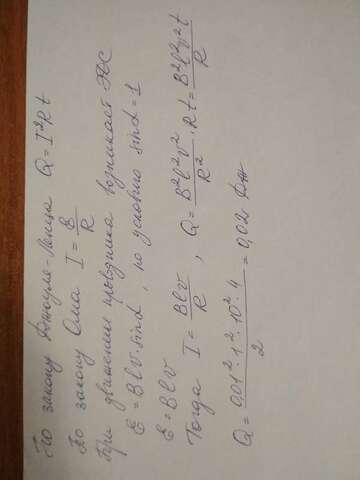 По закону Джоуля-Ленца Q = I²Rt
По закону Ома I = B/R
При движении проводника возникает ЭДС
Ɛ = Blv·sinα, по условию sinα = 1
Ɛ = Blv
Тогда I = Blv/R, Q = B²l²v²/R² · Rt = B²l²v²t/R
Q = 0,01² · 1² · 10² · 4 / 2 = 0,02 Дж